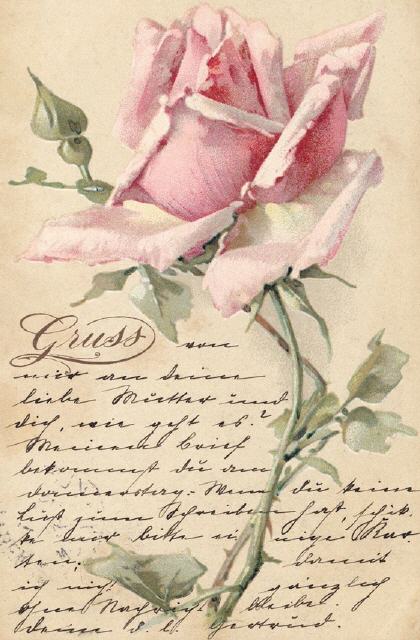 Gruss von
mir an deine
liebe Mutter und
dich, wie geht es?
Meinen Brief
bekommst du am
donnerstag. Wenn du keine
lust zum Schreiben hast, schik-
ke mir bitte einige Kar-
ten, damit
ich nicht gänzlich
ohne Nachricht bleibe.
deine d. l. Gertrud.